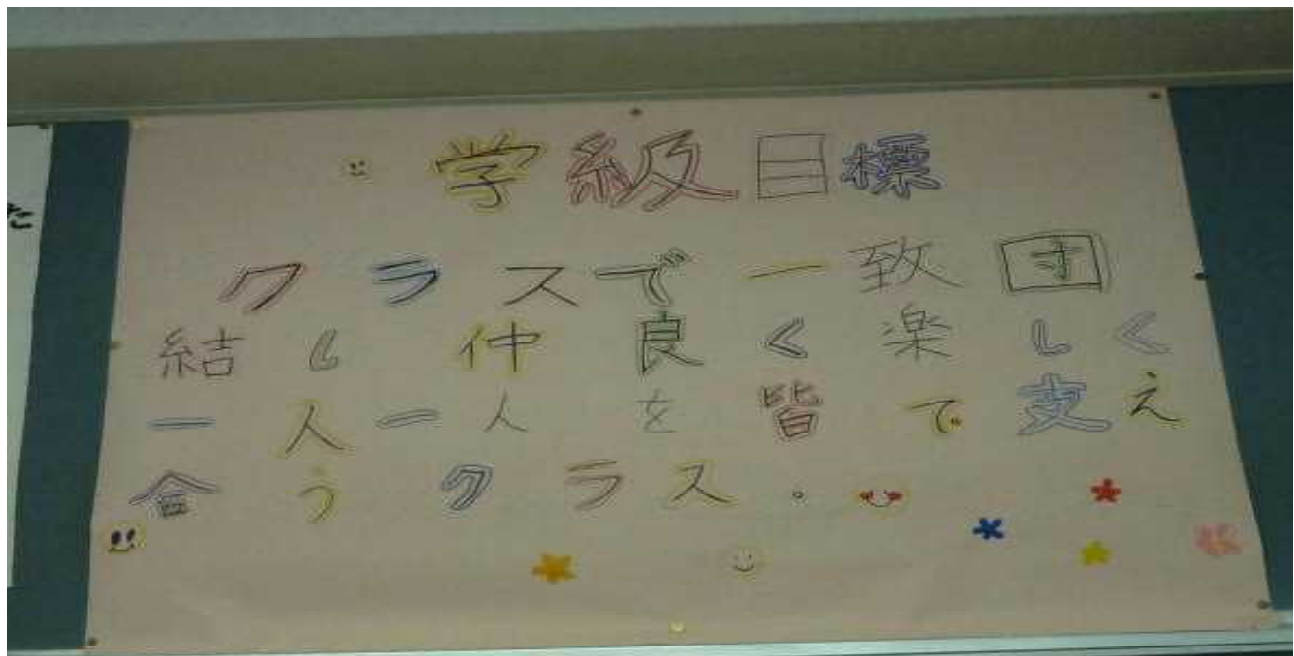 学級目標
クラスで一致団
結し仲良く楽しく
一人一人を皆で支え
合うクラス。
た